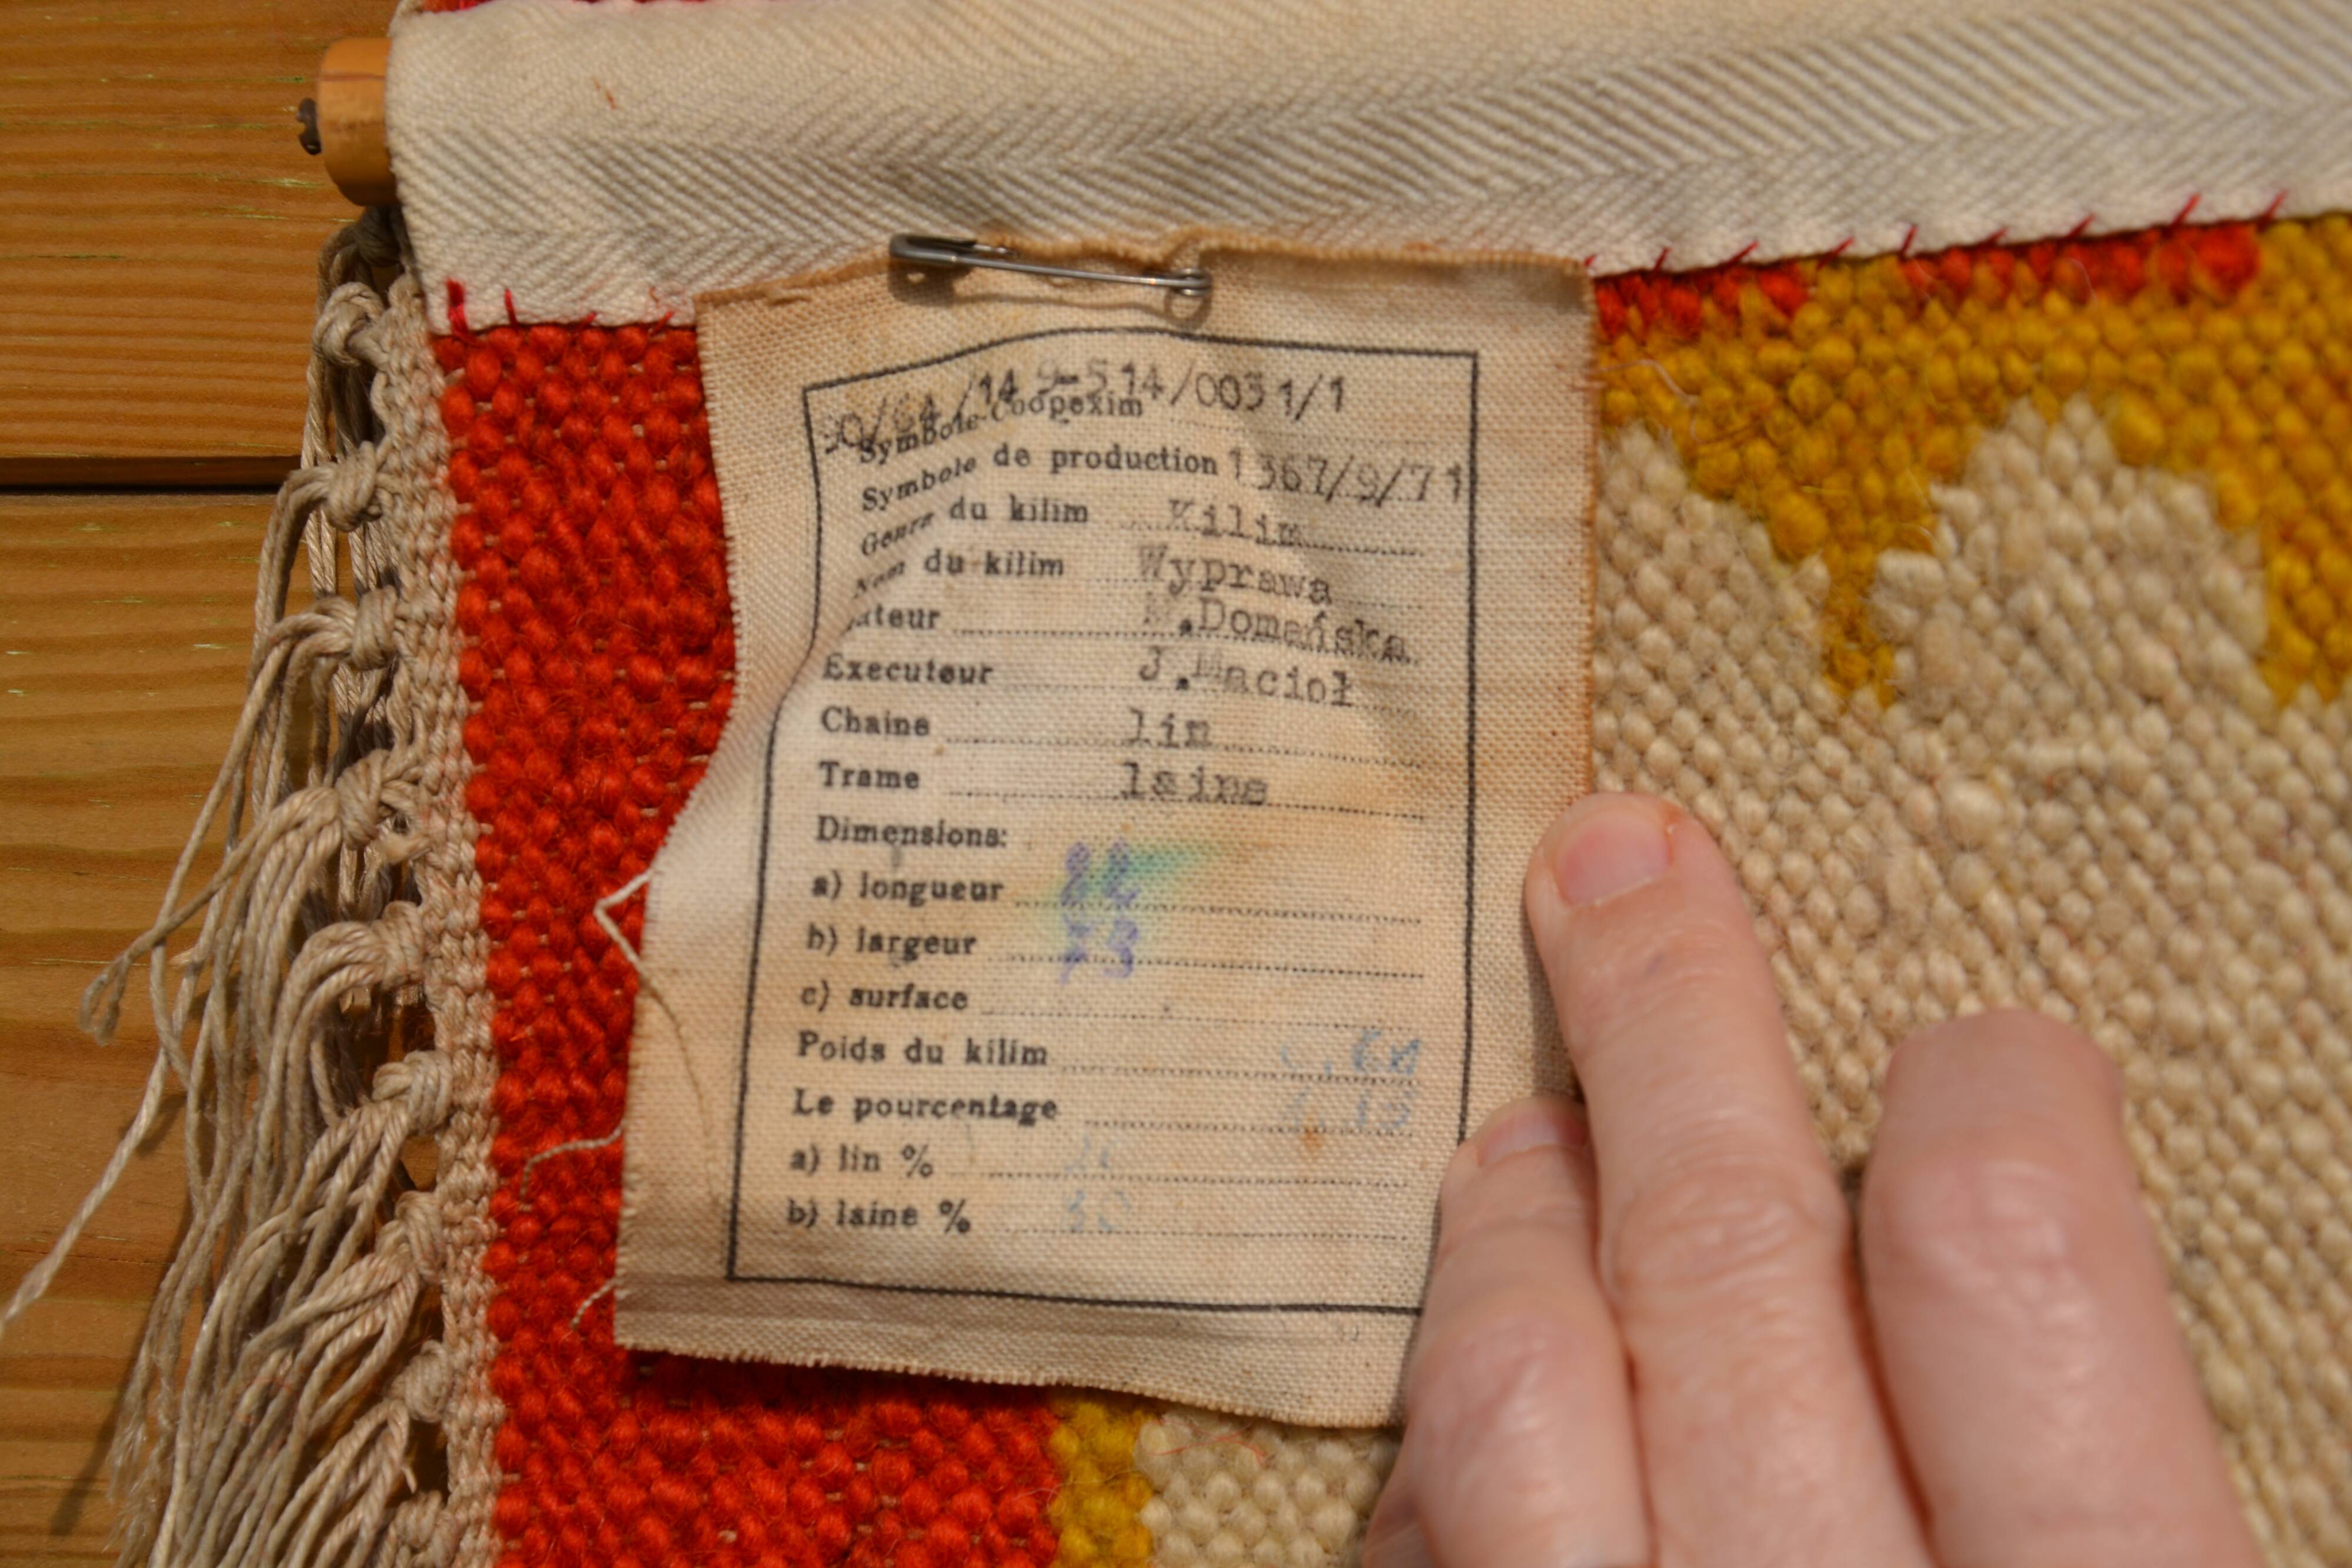 /14 9-514/0031/1
Symbole Coopexim
Symbole de production 1367/9/71
Genre du kilim Kilim
Nom du kilim Wyprawa
ateur M.Domańska
Executeur J.Macioł
Chaine lin
Trame laine
Dimensions:
a) longueur
b) largeur 73
c) surface
Poids du kilim
Le pourcentage
a) lin %
b) laine %